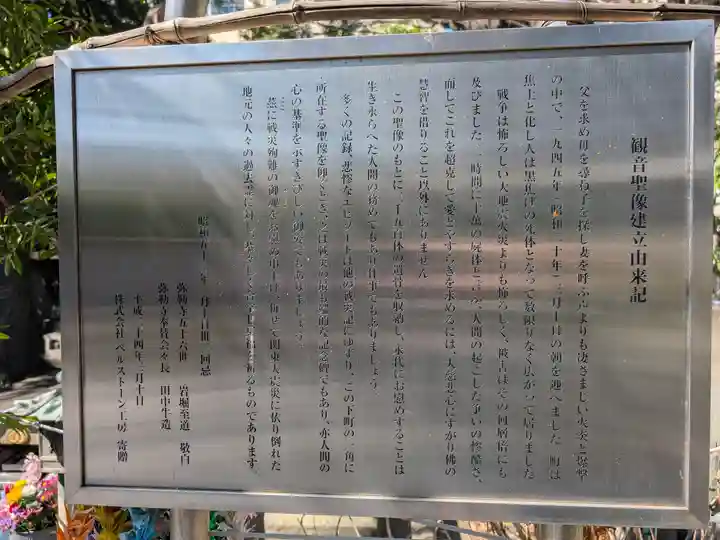 観音聖像建立由来記
父を求め母を尋ね子を探し妻を呼ぶ声よりも凄さましい火災と爆撃
の中で、一九四五年(昭和二十年)三月十日の朝を迎へました 町は
焦土と化し人は黒焦げの死体となって数限りなく広がって居りました
戦争は怖ろしい大地震火災よりも怖ろしく、被害はその何層倍にも
及びました 一時間に十萬の屍体とこつ、人間の起こした争いの惨酷さ、
而してこれを超克して愛とやすらぎを求めるには、大慈悲心にすがり佛の
慧智を借りること以外にありません
この聖像のもとに、三十五百体の遺骨を収納し、永代にお慰めすることは
生き永らへた人間の務めでもあり仕事でもありましょう
多くの記録、悲惨なエピソードは他の戦災記にゆずり、この下町の一角に
所在する聖像を仰ぐとき、之は戦災の最も端的な記念碑でもあり、亦人間の
心の基準を示すきびしい御姿でもありましょう。
茲に戦災殉難の御魂をお慰め申上げ、併せて関東大震災に依り倒れた
地元の人々の過去霊に対し
を祈るものであります。
昭和五十 年三月十日世三回忌
弥勒寺五十六世 岩堀至道 敬白
弥勒寺奉賛会会長 田中生造
平成二十四年三月十日
株式会社 ベルストーン工房 寄贈